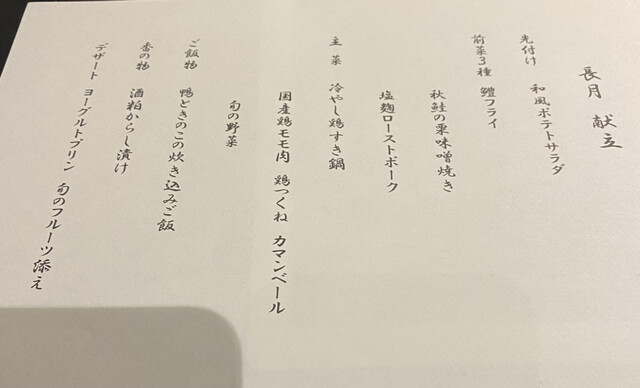 長月 献立
先付け 和風ポテトサラダ
前菜3種 鱧フライ
秋鮭の栗味噌焼き
塩麹ローストポーク
主菜 冷やし鶏すき鍋
国産鶏モモ肉 鶏つくね カマンベール
旬の野菜
ご飯物 鴨ときのこの炊き込みご飯
香の物 酒粕からし漬け
デザート ヨーグルトプリン 旬のフルーツ添え